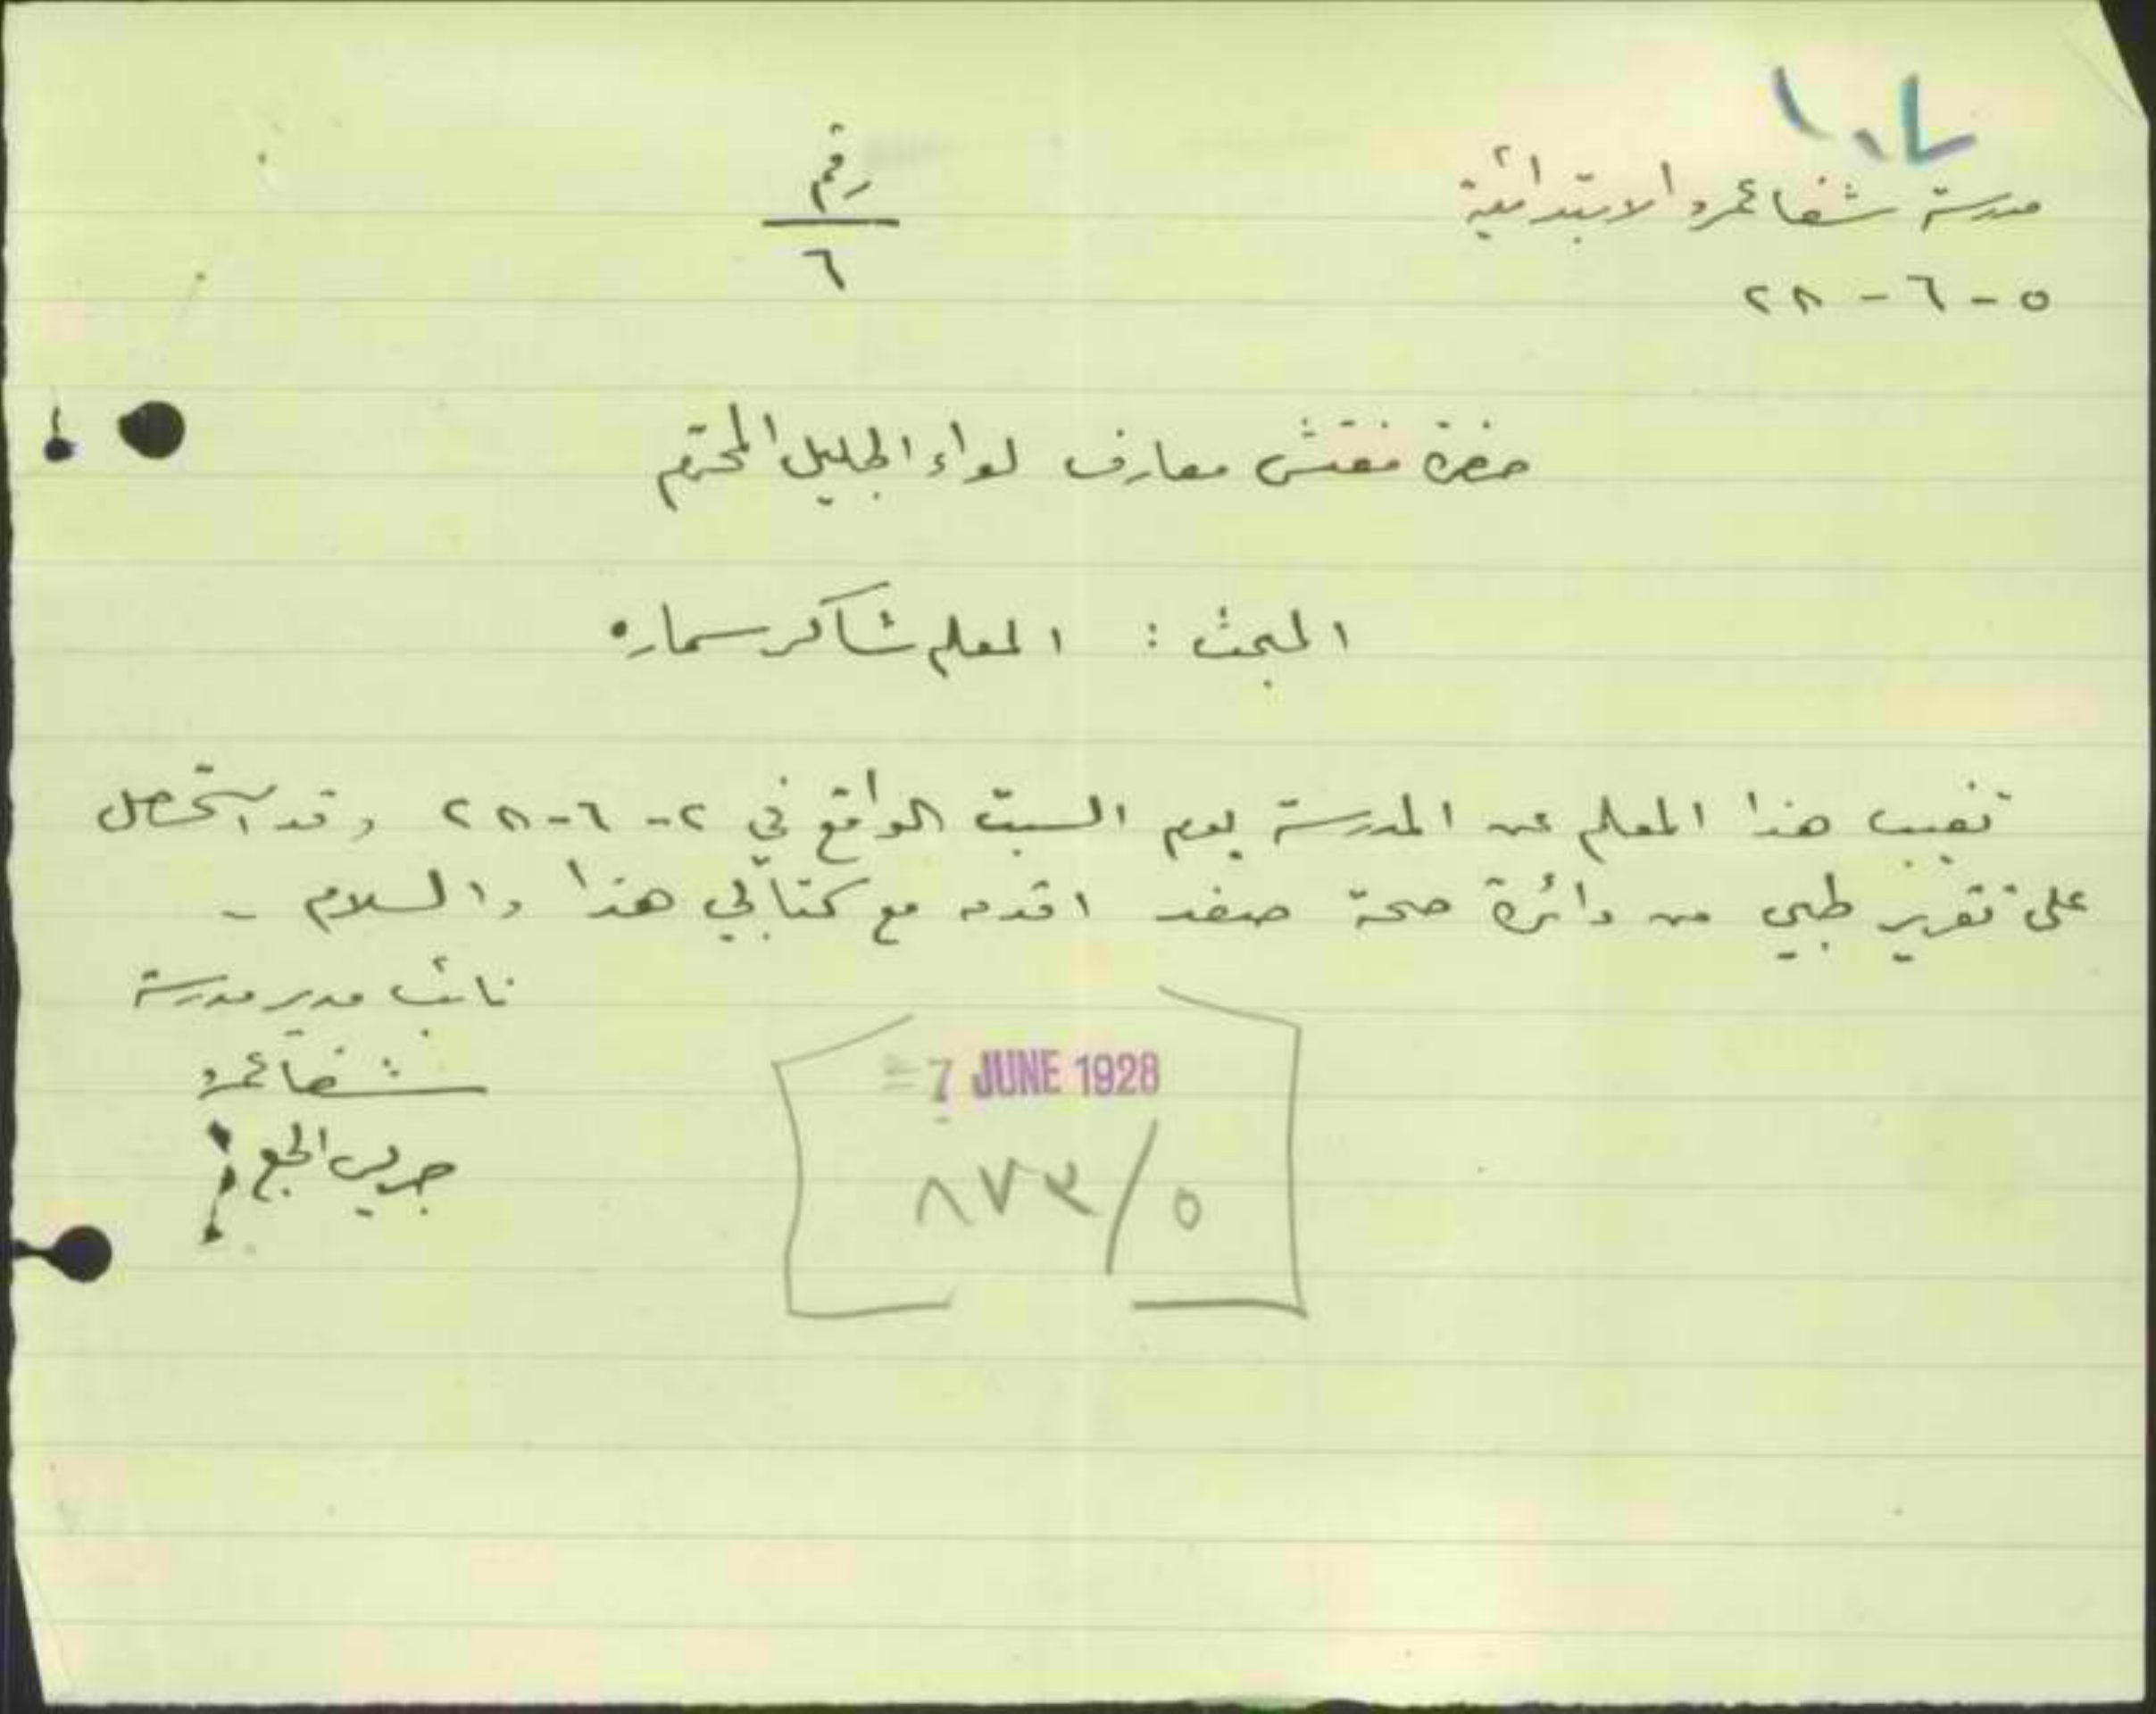 مدرسة شفاعمرو الابتدائية
٥ - ٦ - ٢٨
رقم
٦
حضرة مفتش معارف لواء الجليل المحترم
المبحث : المعلم شاكر سماره
تغيب هذا المعلم عن المدرسة يوم السبت الواقع في ٢-٦-٢٨ وقد استحصل
على تقرير طبي من دائرة صحة صفد اقدمه مع كتابي هذا والسلام -
نائب مدير مدرسة
شفاعمرو
7 JUNE 1928
٨٧٣/٥